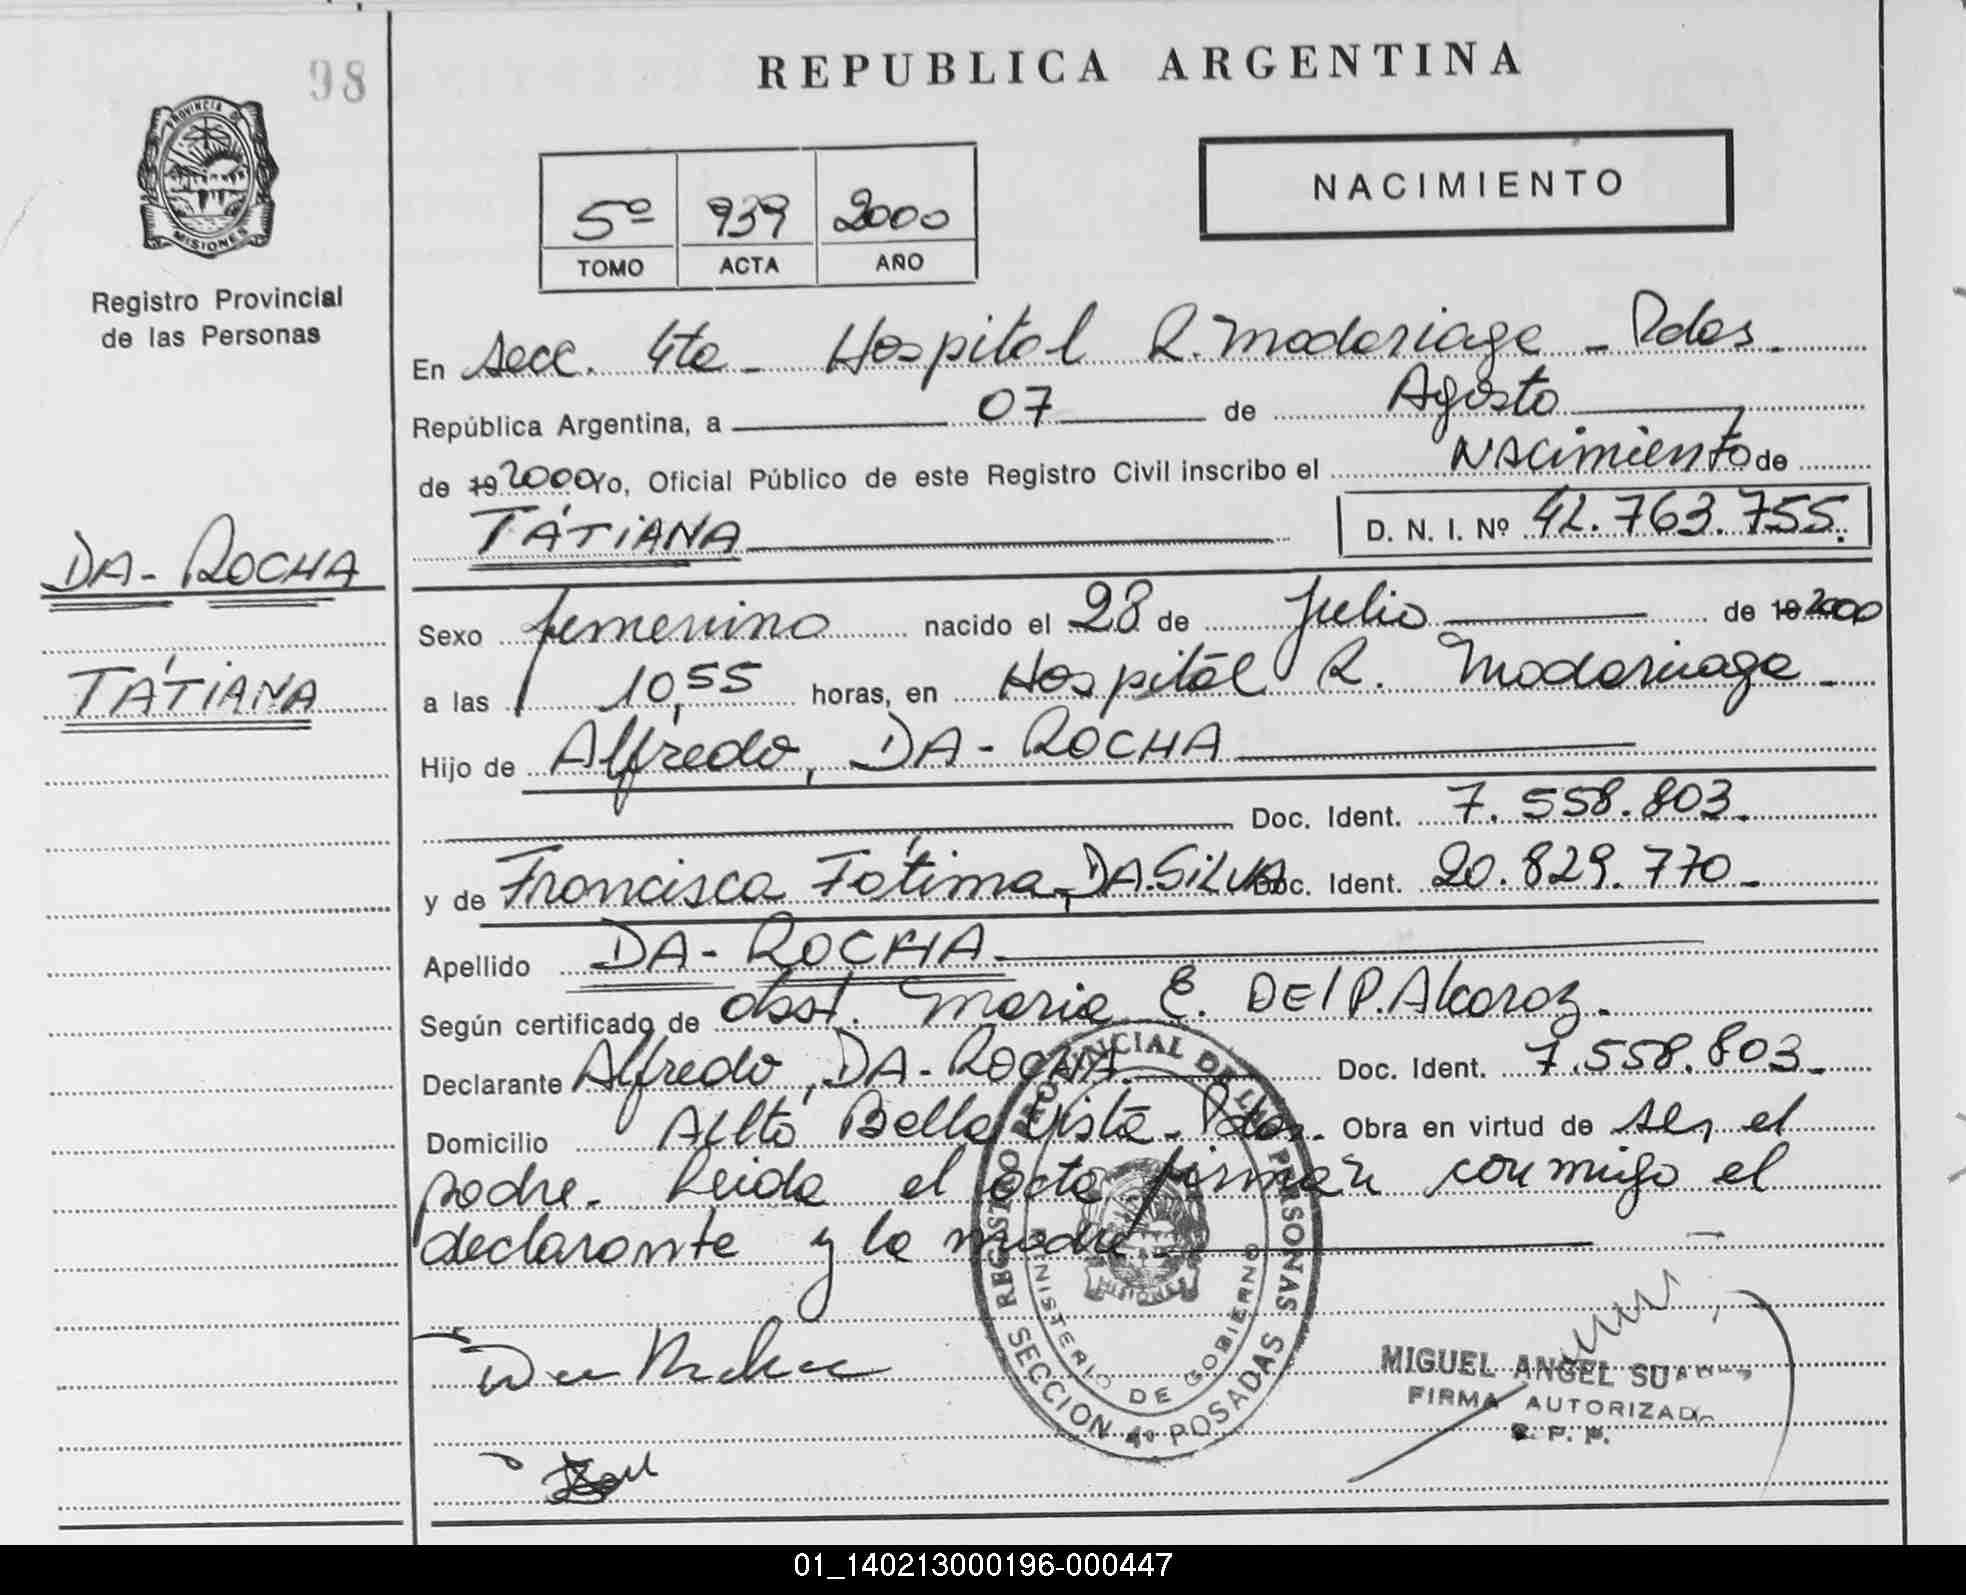 98
REPUBLICA ARGENTINA
PROVINCIA DE
MISIONES
Registro Provincial
de las Personas
5º 939 2000
TOMO ACTA AÑO
NACIMIENTO
En Secc. 4ta - Hospital R. Madariaga - Pdas.
República Argentina, a 07 de Agosto
de 19 2000 Yo, Oficial Público de este Registro Civil inscribo el NACimiento de
TÁTiANA D. N. I. Nº 42.763.755.
DA-ROCHA
TÁTiANA
Sexo femenino nacido el 28 de Julio de 19 2000
a las 10,55 horas, en Hospital R. Madariaga -
Hijo de Alfredo, DA-ROCHA
Doc. Ident. 7.558.803.
y de Francisca Fátima, DA.SiLVA Doc. Ident. 20.829.770 -
Apellido DA-ROCHA
Según certificado de obst. Maria E. DEl P. Alcaraz.
Declarante Alfredo, DA-ROCHA. Doc. Ident. 7.558.803.
Domicilio Alto Bella Vista - Pdas. Obra en virtud de ser el
padre. Leida el acta firman conmigo el
declarante y la madre
REGISTRO PROVINCIAL DE LAS PERSONAS
MINISTERIO DE GOBIERNO
MISIONES
SECCION 4ª POSADAS
MIGUEL ANGEL
FIRMA AUTORIZADA
R. P. P.
01_140213000196-000447